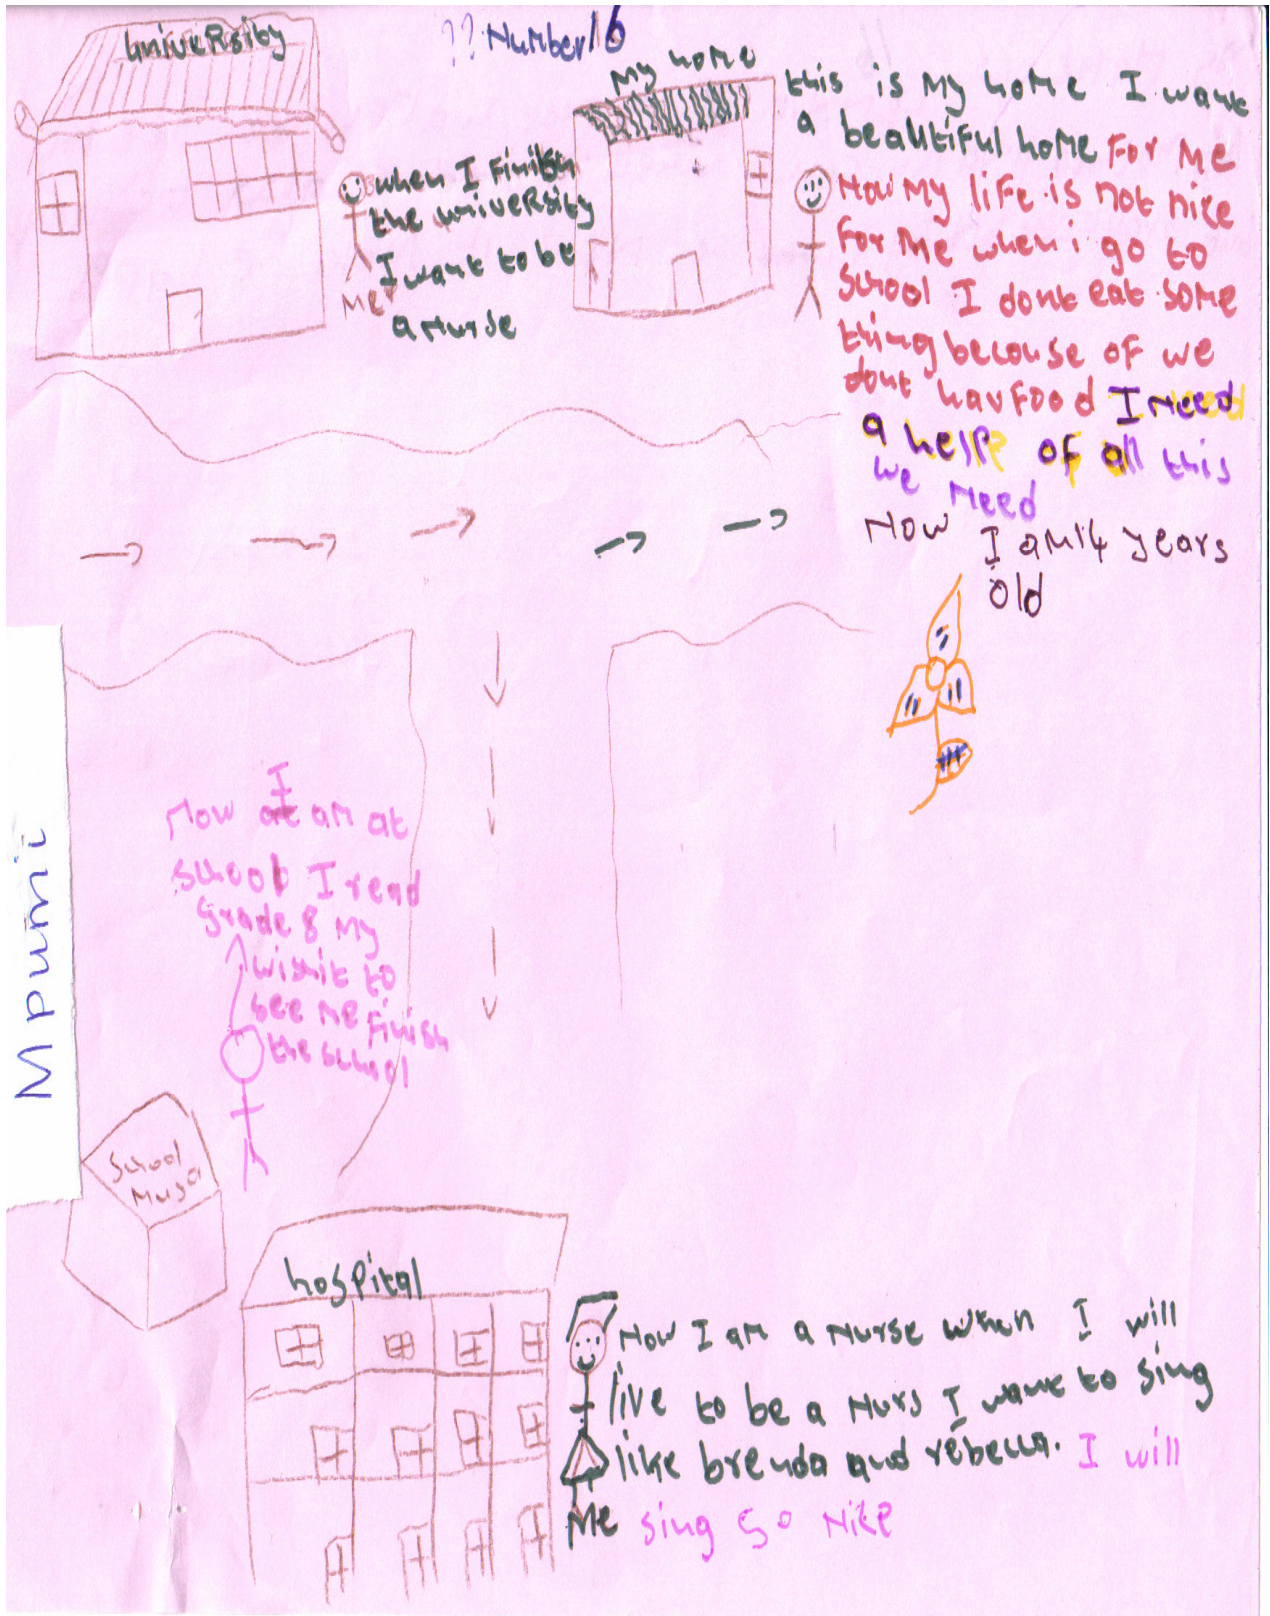 university
?? Number 16
My home
when I Finish
the university
I want to be
a nurse
Me
this is My home I want
a beautiful home For Me
Now My life is not nice
For Me when i go to
school I dont eat some
thing becouse of we
dont hav Food I Need
a help of all this
we Need
Now I am 14 years
old
Mpumi
I
Now at am at
school I read
grade 8 My
wish it to
see Me Finish
the school
School
Musa
hospital
Now I am a Nurse when I will
live to be a Nurs I want to sing
like brenda and rebecca. I will
Me sing so Nice